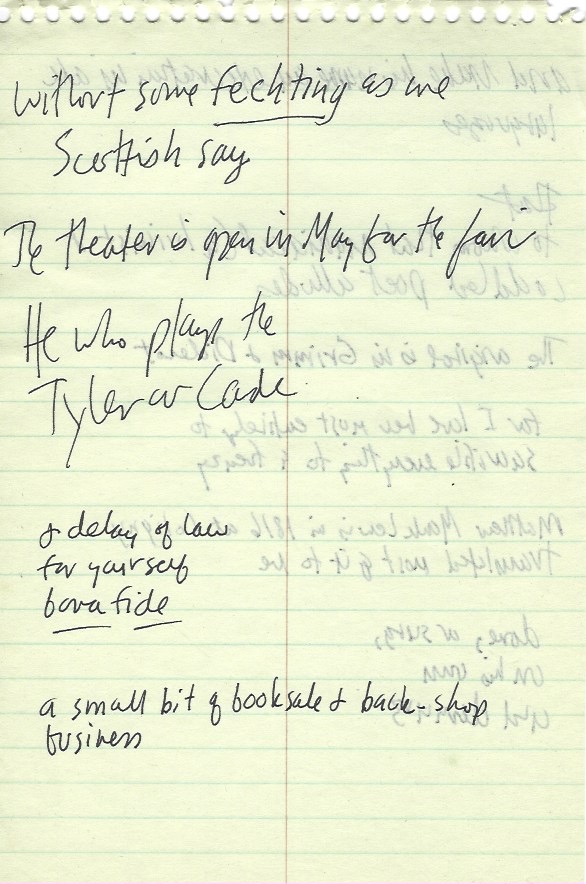 without some fechting as we
Scottish say
The theater is open in May for the fair
He who plays the
Tyler or Cade
& delay of law
for yourself
bona fide
a small bit of booksale & back-shop
business